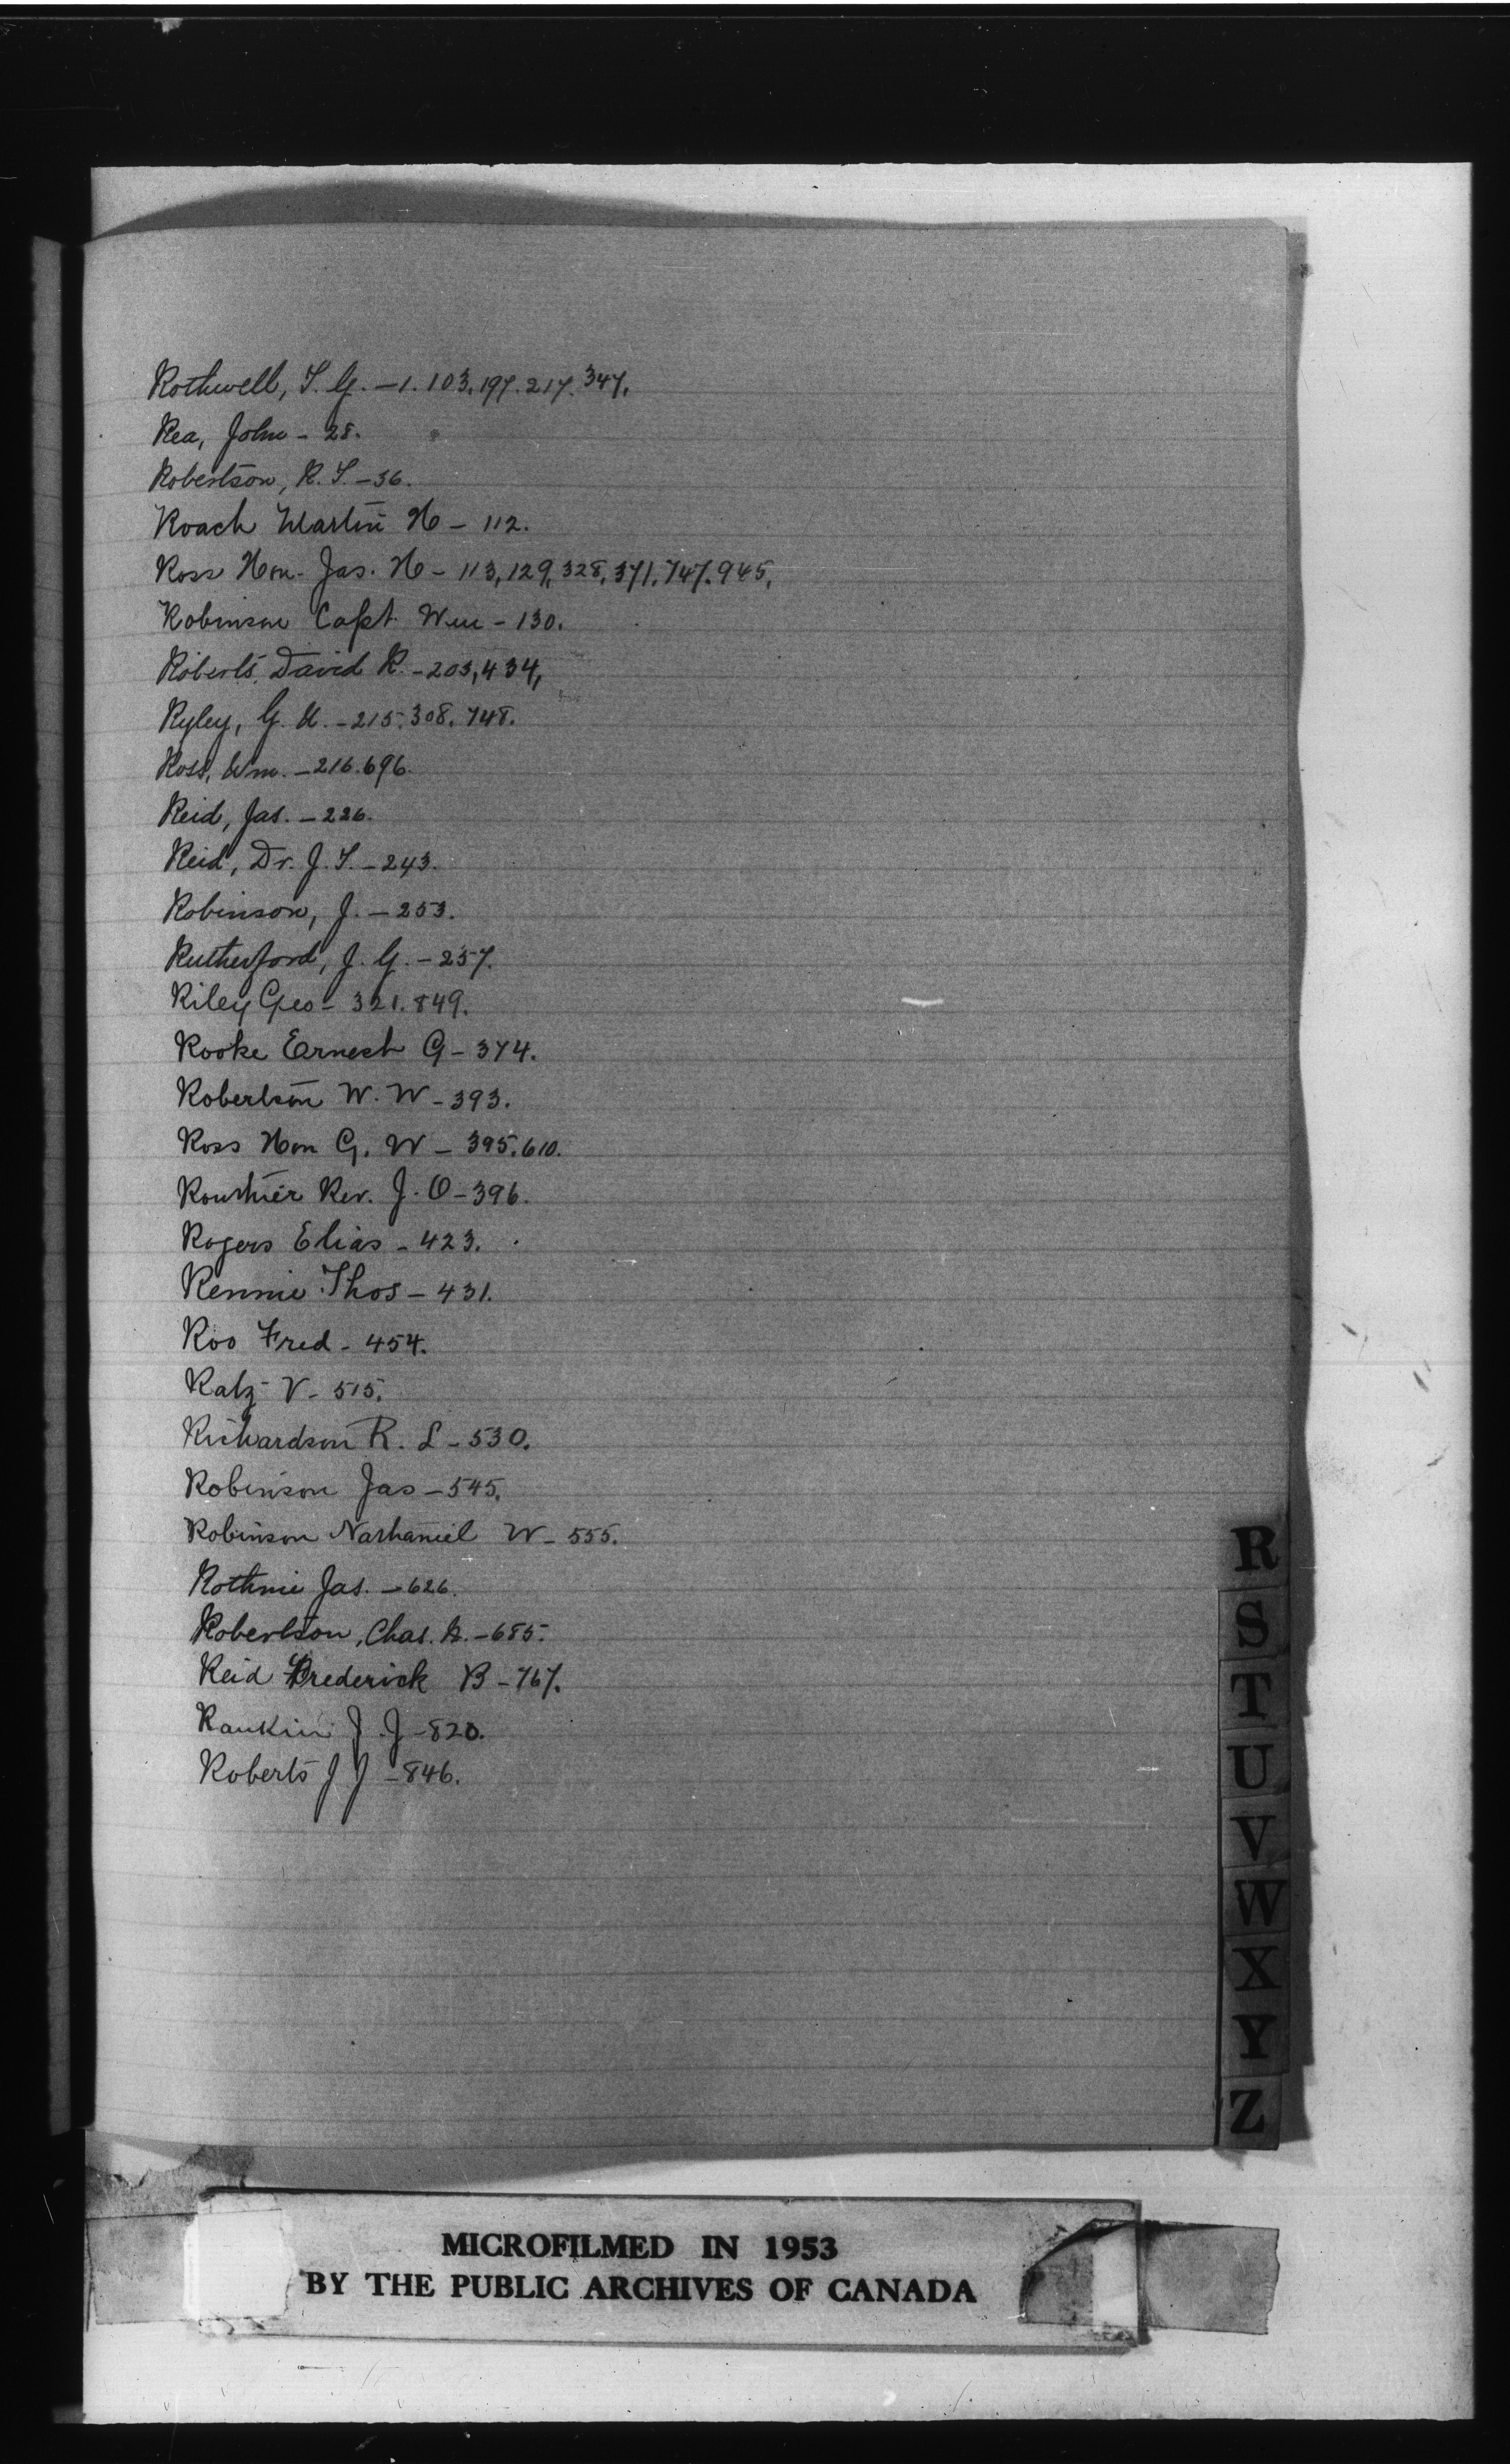 Rothwell, T. G. – 1. 103. 197. 217. 347.
Rea, John – 28.
Robertson, R. T. – 36.
Roach Martin H – 112.
Ross Hon. Jas. H – 113, 129, 328, 371, 747. 945,
Robinson Capt. Wm – 130.
Roberts, David R. – 203, 434,
Ryley, G. U. – 215. 308. 748.
Ross, Wm. – 216. 696.
Reid, Jas. – 226.
Reid, Dr. J. T. – 243.
Robinson, J. – 253.
Rutherford, J. G. – 257.
Riley Geo – 321. 849.
Rooke Ernest G – 374.
Robertson W. W – 393.
Ross Hon G. W – 395. 610.
Routhier Rev. J. O – 396.
Rogers Elias – 423.
Rennie Thos – 431.
Roo Fred – 454.
Ratz V – 515.
Richardson R. L – 530.
Robinson Jas – 545.
Robinson Nathaniel W – 555.
Rothnie Jas. – 626.
Robertson, Chas. – 685.
Reid Frederick B – 767.
Rankin J. J – 820.
Roberts J J – 846.
R
S
T
U
V
W
X
Y
Z
MICROFILMED IN 1953
BY THE PUBLIC ARCHIVES OF CANADA